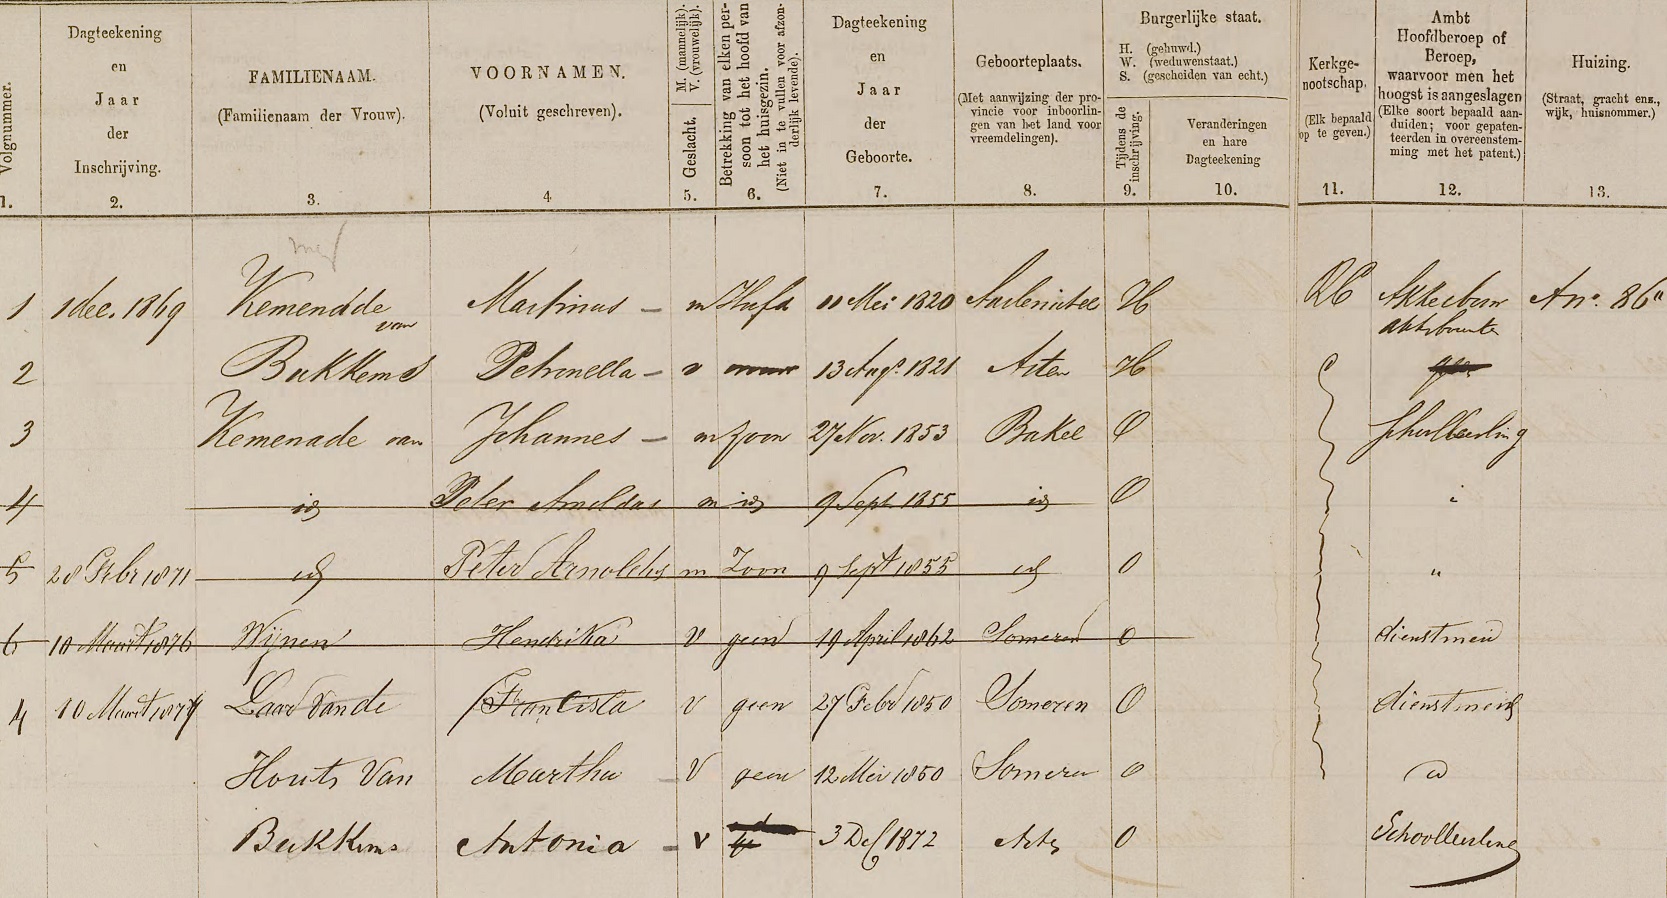 Volgnummer.
Dagteekening
en
Jaar
der
Inschrijving.
FAMILIENAAM.
(Familienaam der Vrouw).
VOORNAMEN.
(Voluit geschreven).
M. (mannelijk).
V. (vrouwelijk).
Geslacht,
Betrekking van elken per-
soon tot het hoofd van
het huisgezin.
(Niet in te vullen voor afzon-
derlijk levende).
Dagteekening
en
Jaar
der
Geboorte.
Geboorteplaats.
(Met aanwijzing der pro-
vincie voor inboorlin-
gen van het land voor
vreemdelingen).
Burgerlijke staat.
H. (gehuwd.)
W. (weduwenstaat.)
S. (gescheiden van echt.)
Tijdens de
inschrijving.
Veranderingen
en hare
Dagteekening
Kerkge-
nootschap,
(Elk bepaald
op te geven.)
Ambt
Hoofdberoep of
Beroep,
waarvoor men het
hoogst is aangeslagen
(Elke soort bepaald aan-
duiden; voor gepaten-
teerden in overeenstem-
ming met het patent.)
Huizing.
(Straat, gracht enz.,
wijk, huisnommer.)
1. 2. 3. 4 5. 6. 7. 8. 9. 10. 11. 12. 13.
1 1 dec. 1869 Kemenade van Martinus m Hoofd 11 Mei 1820 Aarlerixtel H RC Akkerbouw A no. 86a
akkerbouwster
2 Bukkems Petronella v vrouw 13 Aug. 1821 Asten H geen
3 Kemenade van Johannes m zoon 27 Nov. 1853 Bakel O schoolleerling
4 id Peter Arnoldus m id 9 Sept 1855 id O "
5 28 Febr 1871 id Peter Arnoldus m Zoon 9 Sept 1855 id O "
6 10 Maart 1876 Wijnen Hendrika V geen 19 April 1862 Someren O dienstmeid
4 10 Maart 1877 Laar van de Francisca V geen 27 Febr 1850 Someren O dienstmeid
Houts Van Martha V geen 12 Mei 1860 Someren O id
Bukkems Antonia V 3 Dec 1872 Asten O Schoolleerling